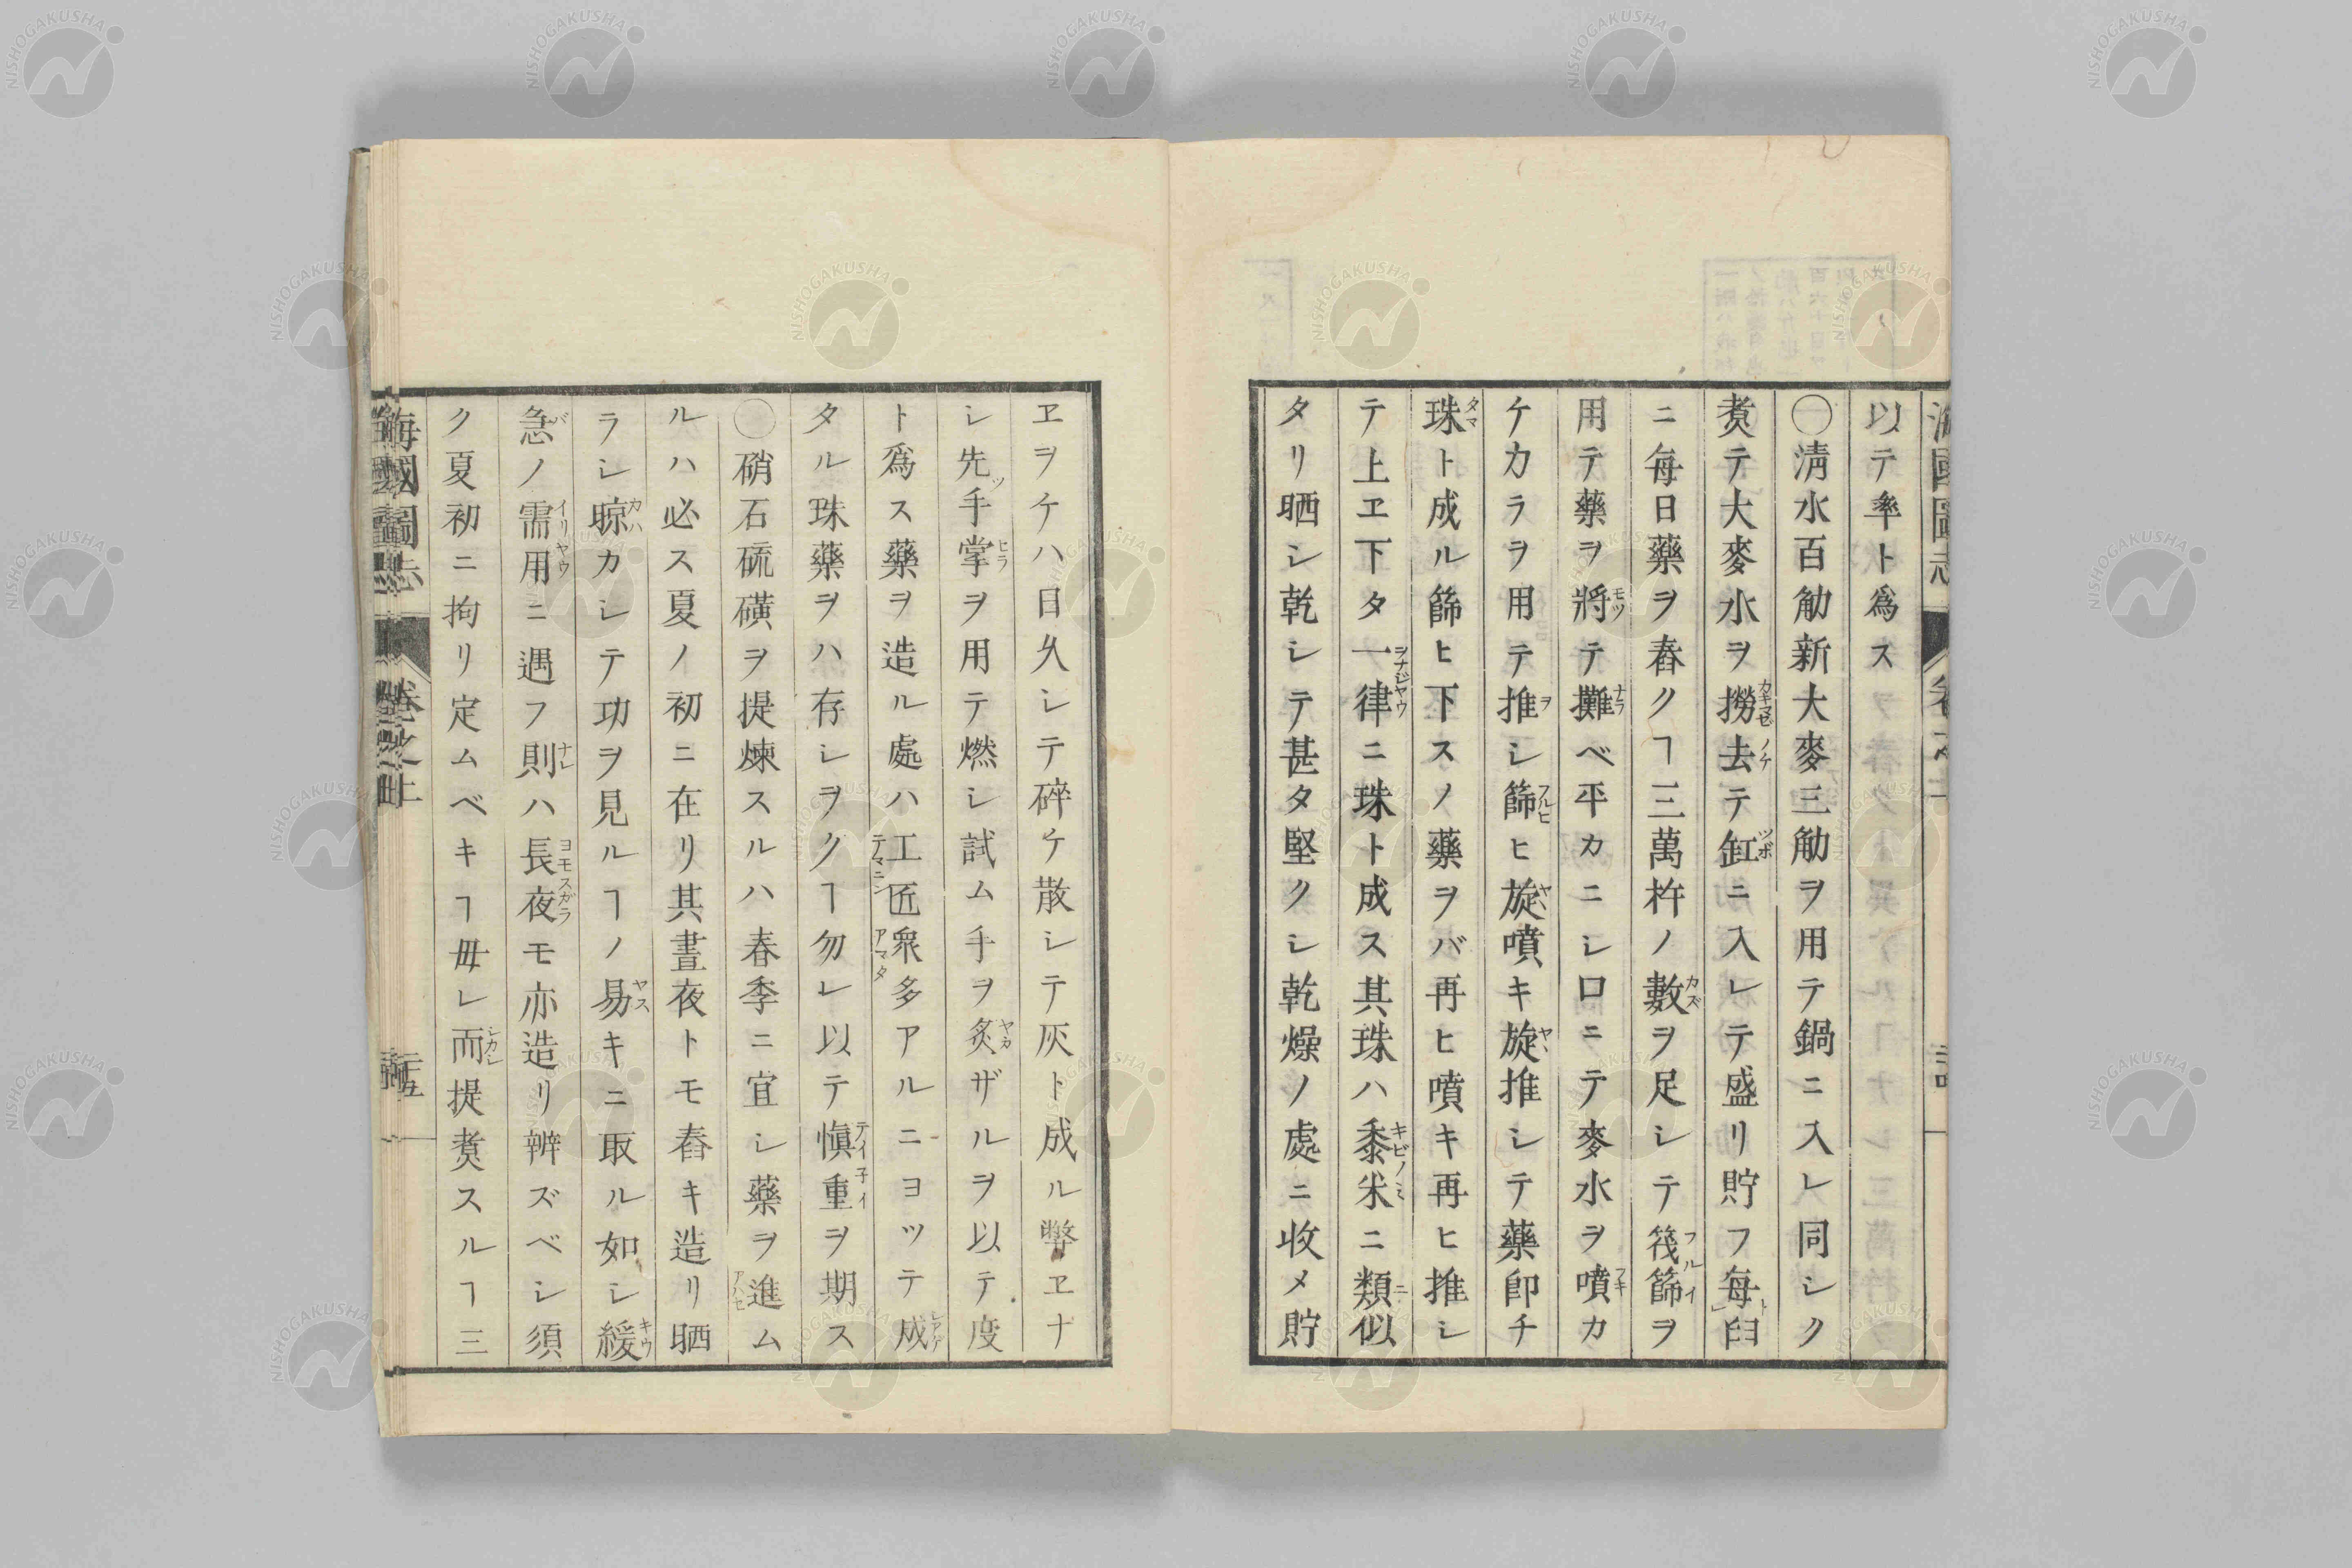 以テ率ト爲ス
〇淸水百觔新大麥三觔ヲ用テ鍋ニ入レ同シク
煑テ大麥水ヲ撈去テ缸ニ入レテ盛リ貯フ毎臼
ニ毎日藥ヲ舂クヿ三萬杵ノ數ヲ足シテ篾篩ヲ
用テ藥ヲ將テ攤ベ平カニシ口ニテ麥水ヲ噴カ
ケカラヲ用テ推シ篩ヒ旋噴キ旋推シテ藥卽チ
珠ト成ル篩ヒ下スノ藥ヲバ再ヒ噴キ再ヒ推シ
テ上ヱ下タ一律ニ珠ト成ス其珠ハ黍米ニ類似
タリ晒シ乾シテ甚タ堅クシ乾燥ノ處ニ收メ貯
ヱヲケハ日久シテ碎ケ散シテ灰ト成ル弊ヱナ
シ先手掌ヲ用テ燃シ試ム手ヲ炙ザルヲ以テ度
ト爲ス藥ヲ造ル處ハ工匠衆多アルニヨツテ成
タル珠藥ヲハ存シヲクヿ勿レ以テ愼重ヲ期ス
〇硝石硫磺ヲ提煉スルハ春季ニ宜シ藥ヲ進ム
ルハ必ス夏ノ初ニ在リ其晝夜トモ舂キ造リ晒
ラシ晾カシテ功ヲ見ルヿノ易キニ取ル如シ緩
急ノ需用ニ遇フ則ハ長夜モ亦造リ辨ズベシ須
ク夏初ニ拘リ定ムベキヿ毋レ而提煑スルヿ三
海國圖志 卷之上 三十五
NISHOGAKUSHA